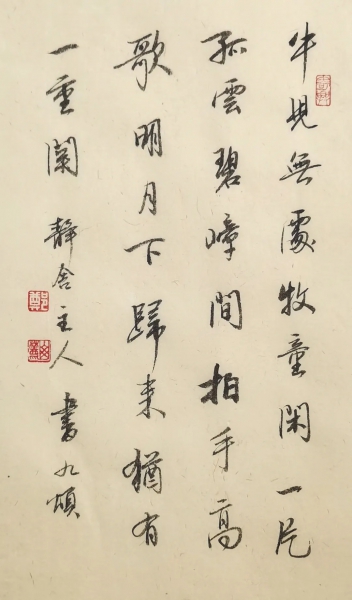 牛見無處牧童閑一片
孤雲碧嶂間拍手高
歌明月下歸来猶有
一重關 靜舍主人 書九頌